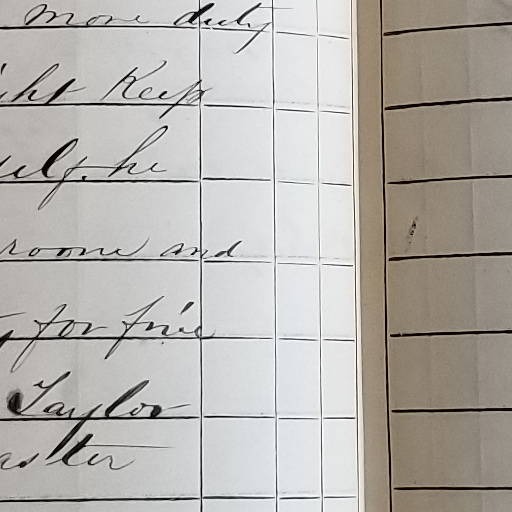 more duty
ght Keep
self he
roome and
for five
Taylor
aster